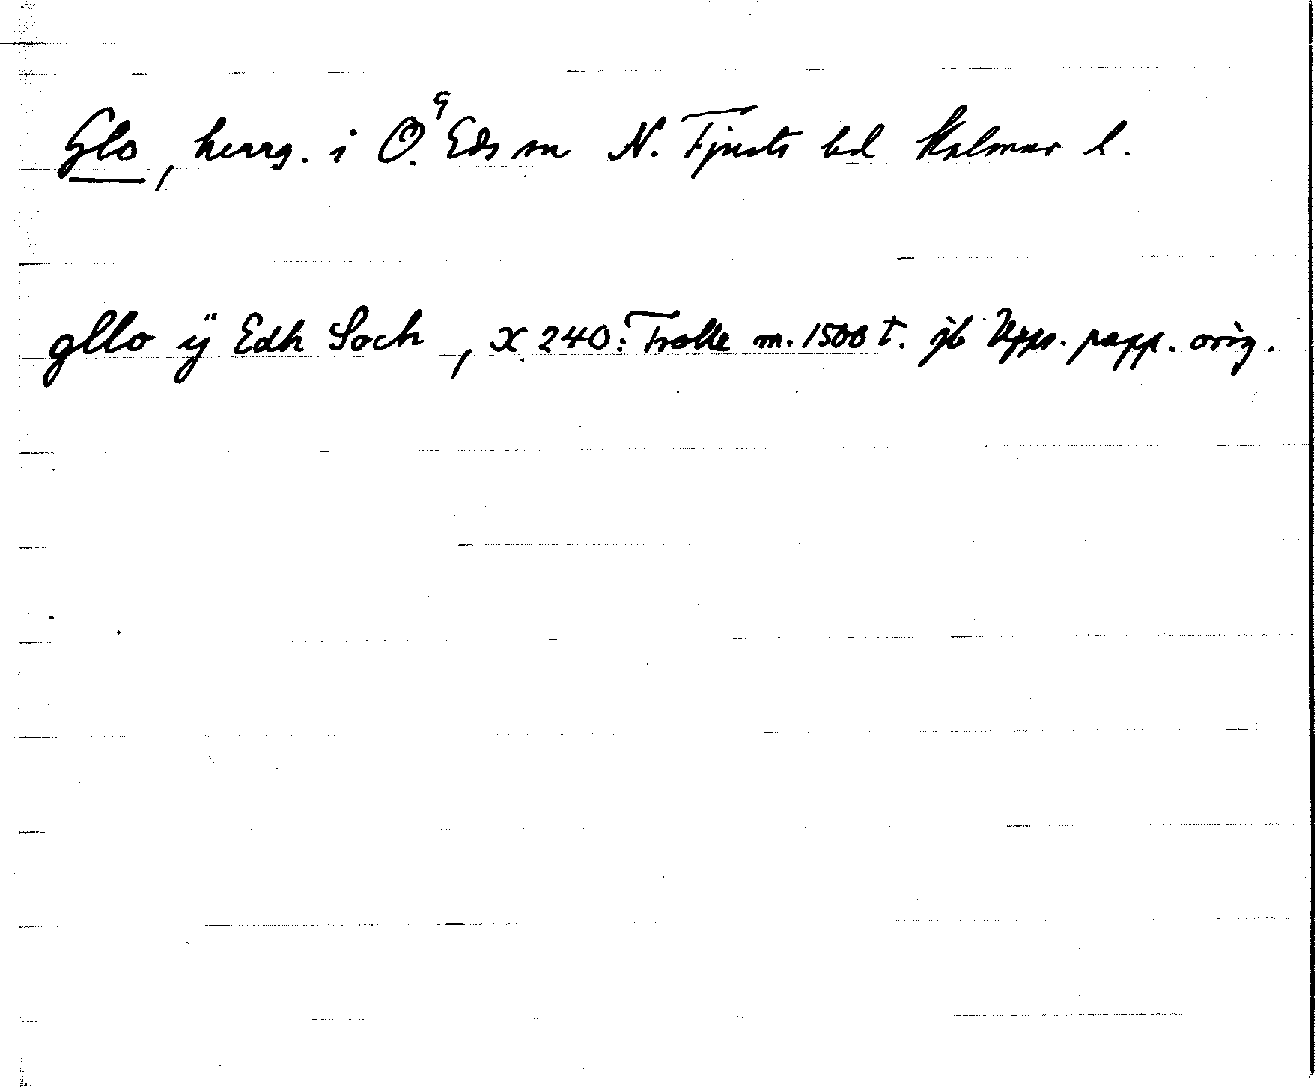 Glo, herrg. i Ö. Eds sn N. Tjusts hd Kalmar l.
gllo ÿ Edh Soch, X 240: Trolle m. 1500 t. jb Upps. papp. orig.